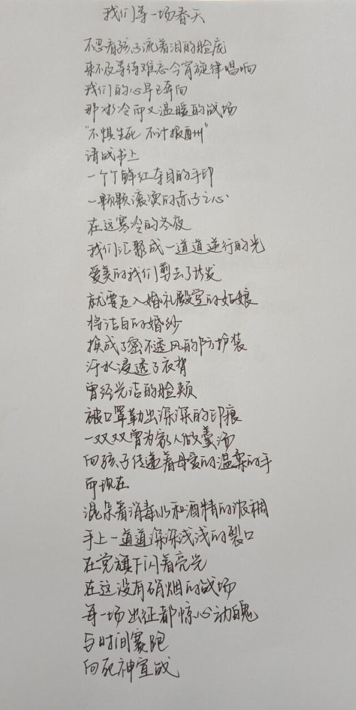 我们等一场春天
不忍看孩子流着泪的脸庞
来不及等待难忘今宵旋律唱响
我们的心早已奔向
那冰冷而又温暖的战场
"不惧生死 不计报酬"
请战书上
一个个鲜红夺目的手印
一颗颗滚烫的赤子之心
在这寒冷的冬夜
我们汇聚成一道道逆行的光
爱美的我们剪去了长发
就要迈入婚礼殿堂的姑娘
将洁白的婚纱
换成了密不透风的防护装
汗水浸透了衣背
曾经光洁的脸颊
被口罩勒出深深的印痕
一双双曾为家人做羹汤
向孩子传递着母爱的温柔的手
而现在
混杂着消毒水和酒精的浸润
手上一道道深深浅浅的裂口
在党旗下闪着亮光
在这没有硝烟的战场
每一场出征都惊心动魄
与时间赛跑
向死神宣战